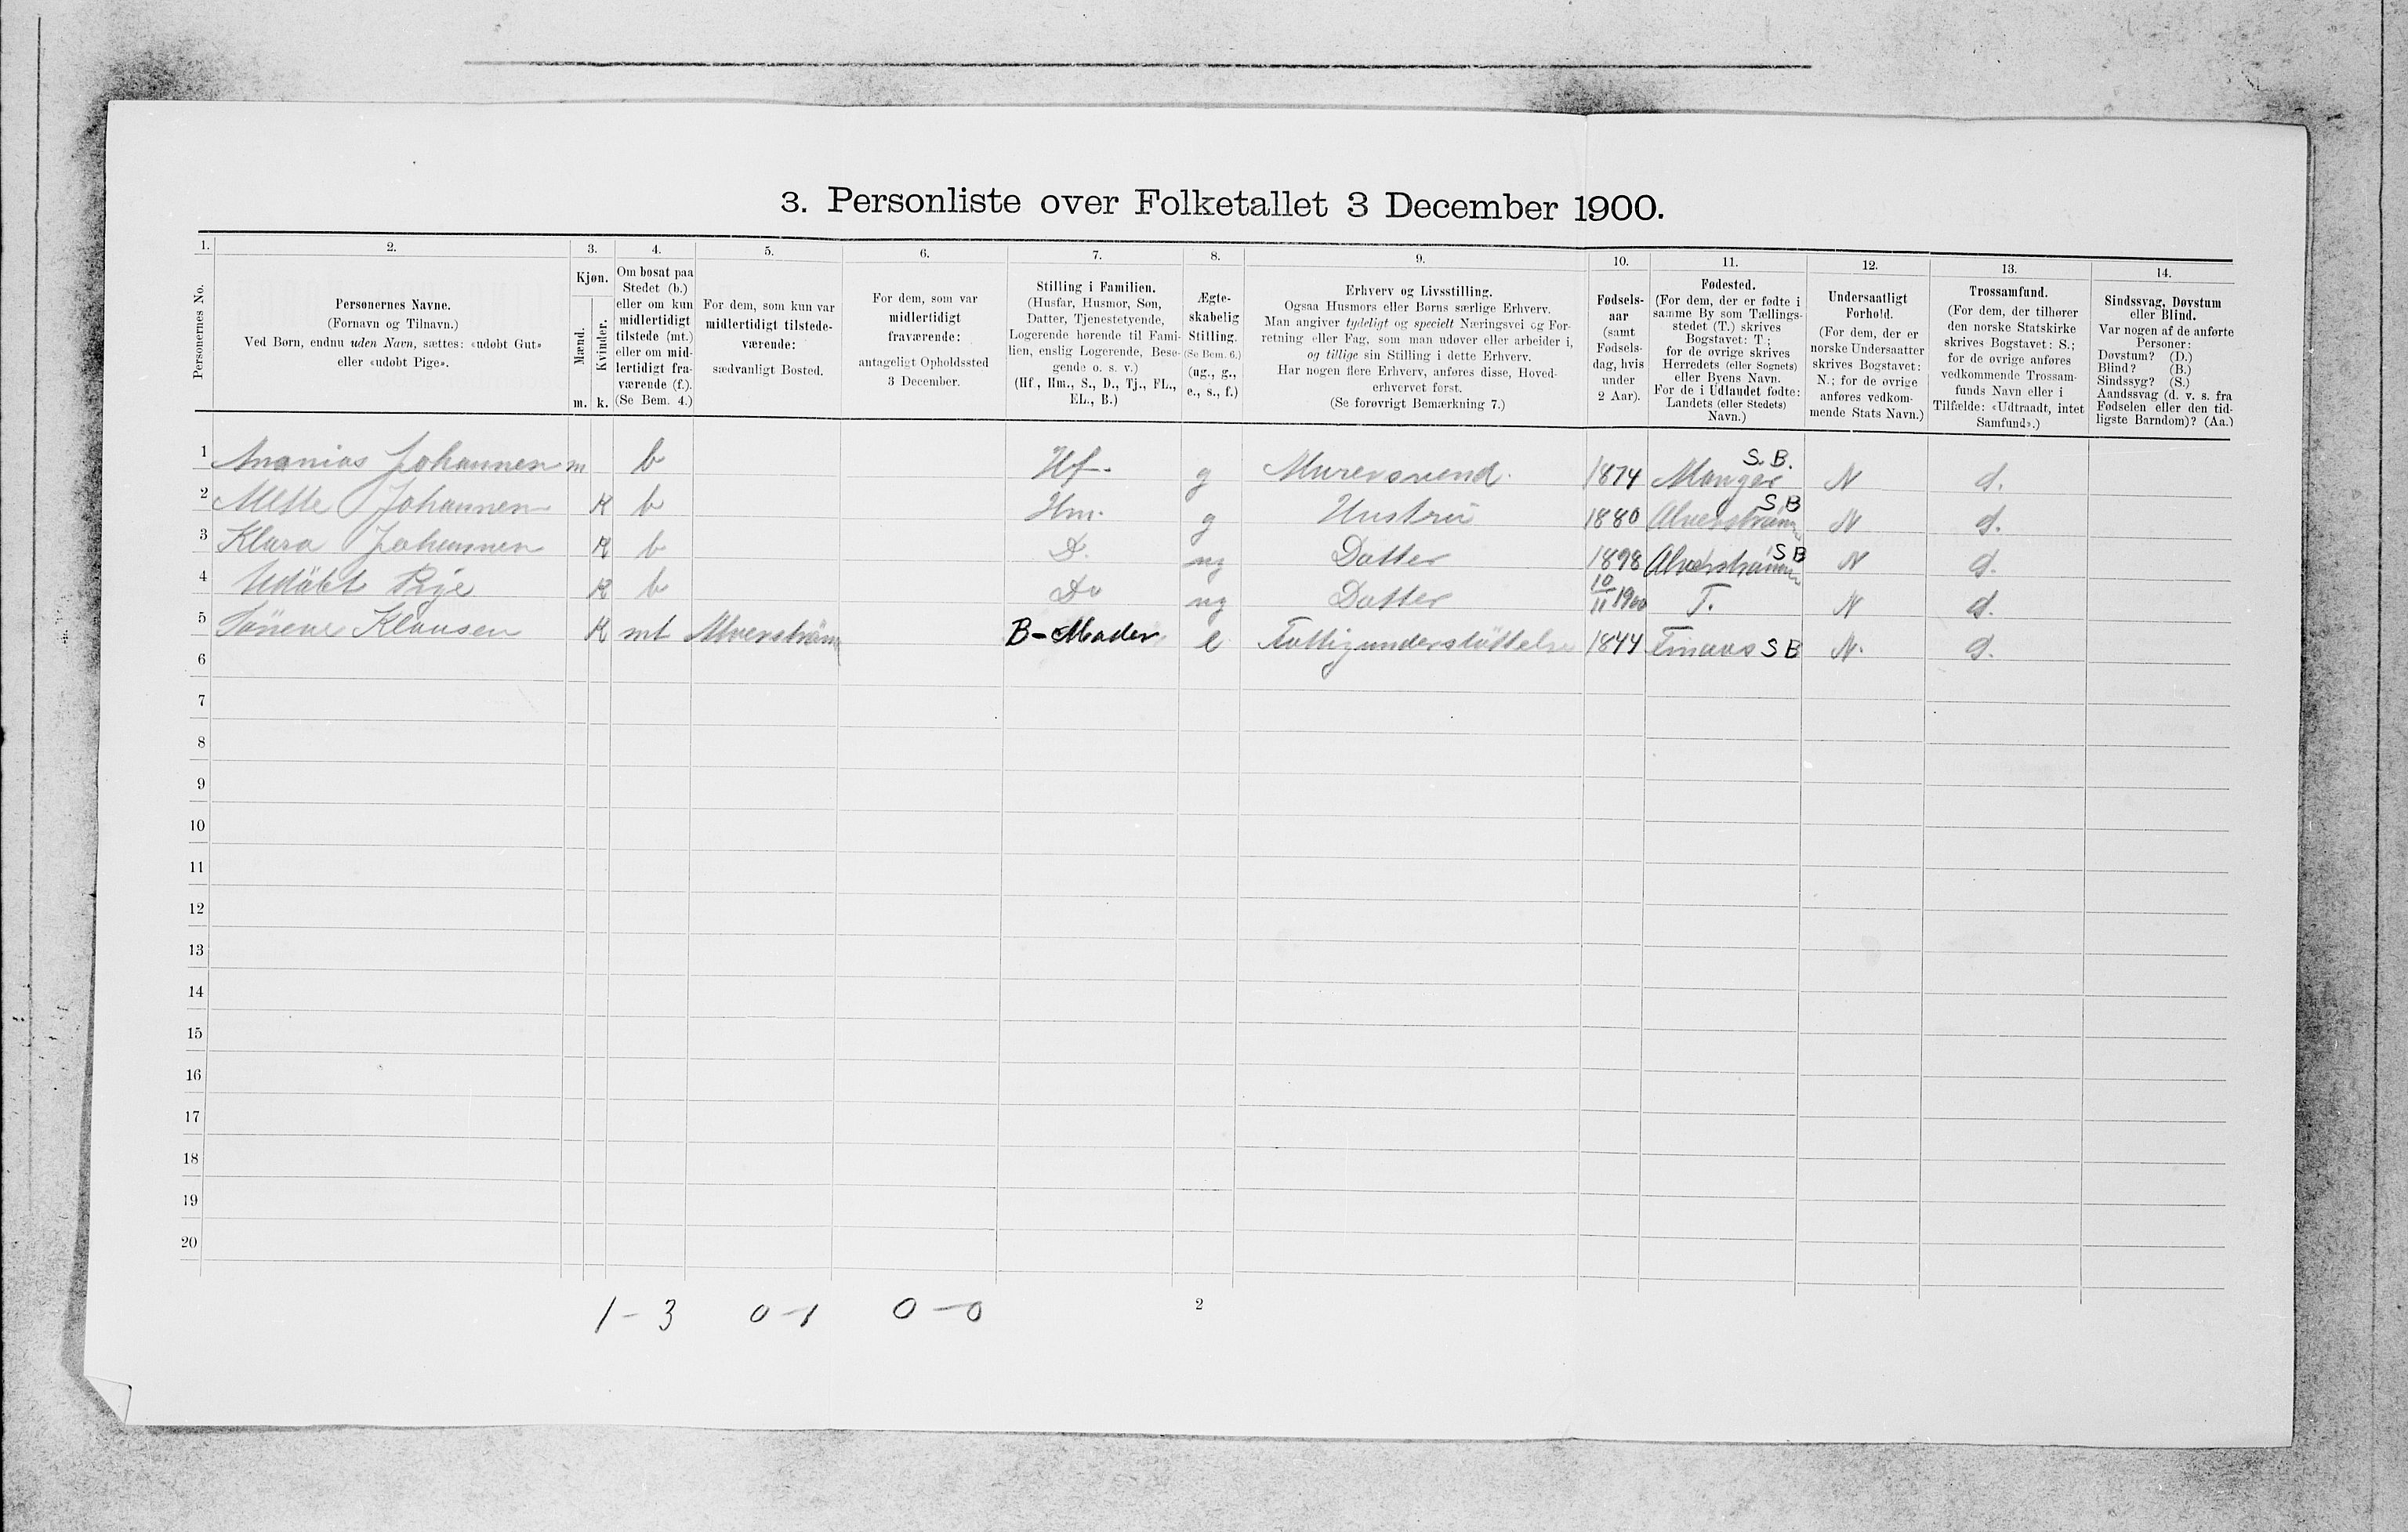 3. Personliste over Folketallet 3 December 1900.
1. 2. 3. 4. 5. 6. 7. 8. 9. 10. 11. 12. 13. 14.
Personernes No.
Personernes Navne.
(Fornavn og Tilnavn.)
Ved Børn, endnu uden Navn, sættes: «udøbt Gut»
eller «udøbt Pige».
Kjøn.
Mænd.
Kvinder.
m. k.
Om bosat paa
Stedet (b.)
eller om kun
midlertidigt
tilstede (mt.)
eller om mid-
lertidigt fra-
værende (f.).
(Se Bem. 4.)
For dem, som kun var
midlertidigt tilstede-
værende:
sædvanligt Bosted.
For dem, som var
midlertidigt
fraværende:
antageligt Opholdssted
3 December.
Stilling i Familien.
(Husfar, Husmor, Søn,
Datter, Tjenestetyende,
Logerende hørende til Fami-
lien, enslig Logerende, Besø-
gende o. s. v.)
(Hf., Hm., S., D., Tj., FL.,
EL., B.)
Ægte-
skabelig
Stilling.
(Se Bem. 6.)
(ug., g.,
e., s., f.)
Erhverv og Livsstilling.
Ogsaa Husmors eller Børns særlige Erhverv.
Man angiver tydeligt og specielt Næringsvei og For-
retning eller Fag, som man udøver eller arbeider i,
og tillige sin Stilling i dette Erhverv.
Har nogen flere Erhverv, anføres disse, Hoved-
erhvervet først.
(Se forøvrigt Bemærkning 7.)
Fødsels-
aar
(samt
Fødsels-
dag, hvis
under
2 Aar).
Fødested.
(For dem, der er fødte i
samme By som Tællings-
stedet (T.) skrives
Bogstavet: T.;
for de øvrige skrives
Herredets (eller Sognets)
eller Byens Navn.
For de i Udlandet fødte:
Landets (eller Stedets)
Navn.)
Undersaatligt
Forhold.
(For dem, der er
norske Undersaatter
skrives Bogstavet:
N.; for de øvrige
anføres vedkom-
mende Stats Navn.)
Trossamfund.
(For dem, der tilhører
den norske Statskirke
skrives Bogstavet: S.;
for de øvrige anføres
vedkommende Trossam-
funds Navn eller i
Tilfælde: «Udtraadt, intet
Samfund».)
Sindssvag, Døvstum
eller Blind.
Var nogen af de anførte
Personer:
Døvstum? (D.)
Blind? (B.)
Sindssyg? (S.)
Aandssvag (d. v. s. fra
Fødselen eller den tid-
ligste Barndom)? (Aa.)
1 Ananias Johannen m b Hf. g Murersvend. 1874 Manger S.B. N S.
2 Mette Johannen K b Hm. g Hustru 1880 Alverström S B N S.
3 Klara Johannen K b D. ug Datter 1898 Alverströmm S B N S.
4 Udöbt Pige K b Do ug Datter 10/11 1900 T. N S.
5 K mt Alverström B-Moder e Fattigunderstöttelse 1844 S B N. S.
6
7
8
9
10
11
12
13
14
15
16
17
18
19
20
1 - 3 0 - 1 0 - 0 2